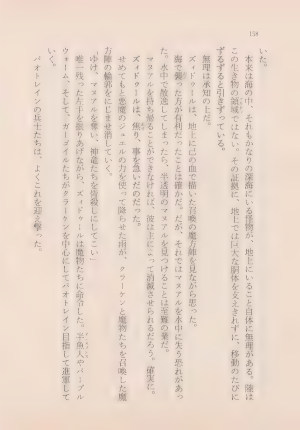 158
いた。
本来は海の中、それもかなりの深海にいる怪物が、地上にいること自体に無理がある。陸は
この生き物の領域ではない。その証拠に、地上では巨大な胴体を支えきれずに、移動のたびに
ずるずると引きずっている。
無理は承知の上だ。
ズィドゥールは、地上に己の血で描いた召喚の魔方陣を見ながら思った。
海で襲った方が有利だったことは確かだ。だが、それではマヌアルを水中に失う恐れがあっ
た。水中で放逸してしまったら、半透明のマヌアルを見つけることは至難の業だ。
マヌアルを持ち帰ることができなければ、彼は上によって消滅させられるだろう。確実に。
ズィドゥールは、焦り、事を急いだのだった。
せめてもと悪魔のジュエルの力を使って降らせた雨が、クラーケンと魔物たちを召喚した魔
方陣の輪郭をにじませ消していく。
「ゆけ、マヌアルを奪い、神竜たちを皆殺しにしてこい」
唯一残った左手を振りあげながら、ズィドゥールは魔物たちに命令した。半魚人やパープル
ウォーム、そして、ガーゴイルたちがクラーケンを中心にしてパオトレイン目指して進軍して
いく。
パオトレインの兵士たちは、よくこれを迎え撃った。